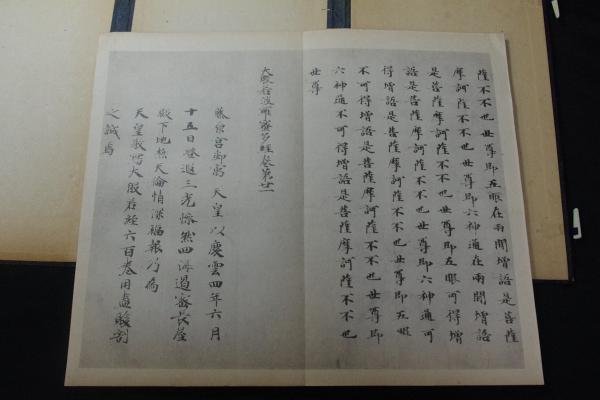 薩不不也世尊即五眼在兩間增語是菩薩
摩訶薩不不也世尊即六神通在兩間增語
是菩薩摩訶薩不不也世尊即五眼可得增
語是菩薩摩訶薩不不也世尊即六神通可
得增語是菩薩摩訶薩不不也世尊即五眼
不可得增語是菩薩摩訶薩不不也世尊即
六神通不可得增語是菩薩摩訶薩不不也
世尊
大般若波羅蜜多經卷第廿一
藤原宮御寓 天皇以慶雲四年六月
十五日登遐三光慘然四海遏密長屋
殿下地極天倫情深福報乃為
天皇敬寫大般若經六百卷用盡酸割
之誠焉